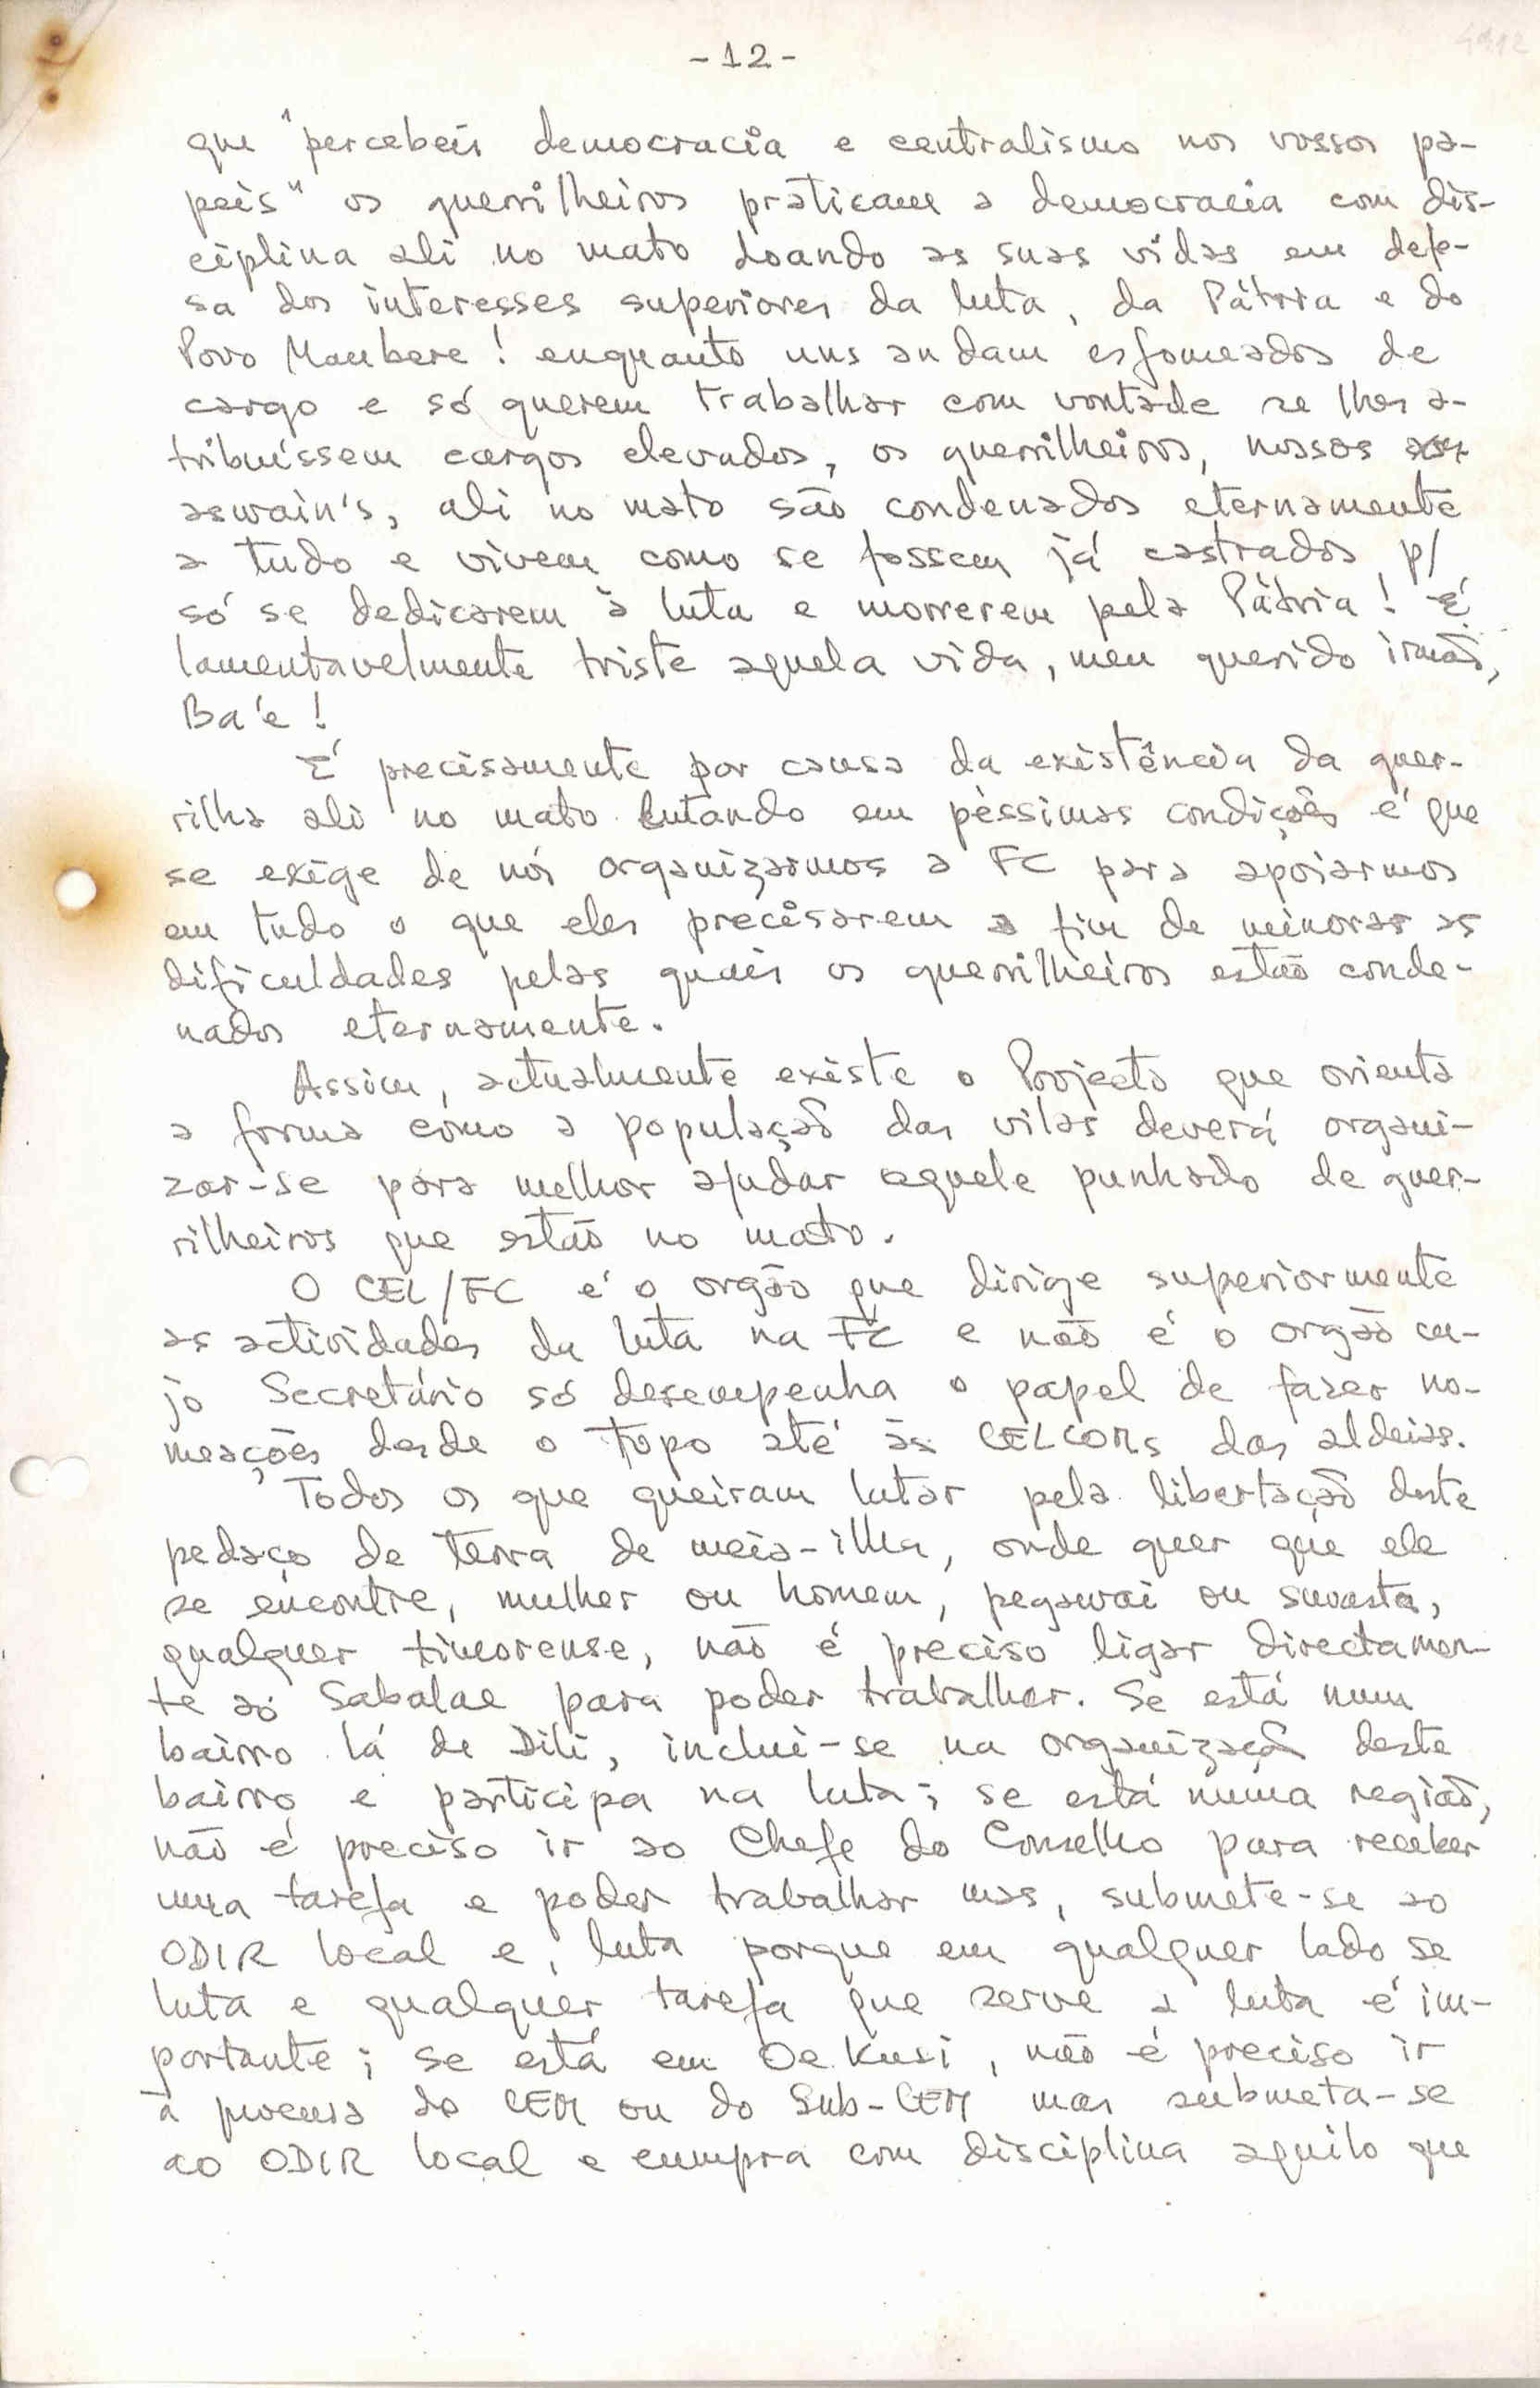 -12-
que "percebeis democracia e centralismo nos vossos pa-
peis" os guerrilheiros praticam a democracia com dis-
ciplina ali no mato doando as suas vidas em defe-
sa dos interesses superiores da luta, da Pátria e do
Povo Maubere! enquanto uns andam esfomeados de
cargo e só querem trabalhar com vontade se lhes a-
tribuíssem cargos elevados, os guerrilheiros, nossos
aswain's, ali no mato são condenados eternamente
a tudo e vivem como se fossem já castrados p/
só se dedicarem à luta e morrerem pela Pátria! É
lamentavelmente triste aquela vida, meu querido irmão,
Ba'e!
É precisamente por causa da existência da guer-
rilha ali no mato lutando em péssimas condições é que
se exige de nós organizarmos a FC para apoiarmos
em tudo o que eles precisarem a fim de minorar as
dificuldades pelas quais os guerrilheiros estão conde-
nados eternamente.
Assim, actualmente existe o Projecto que orienta
a forma como a população das vilas deverá organi-
zar-se para melhor ajudar aquele punhado de guer-
rilheiros que estão no mato.
O CEL/FC é o orgão que dirige superiormente
as actividades da luta na FC e não é o orgão cu-
jo Secretário só desempenha o papel de fazer no-
meações desde o topo até às CELCOMs das aldeias.
Todos os que queiram lutar pela libertação deste
pedaço de terra de meia-ilha, onde quer que ele
se encontre, mulher ou homem, pegawai ou swasta,
qualquer timorense, não é preciso ligar directamen-
te ao Sabalae para poder trabalhar. Se está num
bairro lá de Dili, inclui-se na organização deste
bairro e participa na luta; se está numa região,
não é preciso ir ao Chefe do Conselho para receber
uma tarefa e poder trabalhar mas, submete-se ao
ODIR local e, luta porque em qualquer lado se
luta e qualquer tarefa que serve a luta é im-
portante; se está em Oe Kusi, não é preciso ir
à procura do CEM ou do Sub-CEM mas submeta-se
ao ODIR local e cumpra com disciplina aquilo que